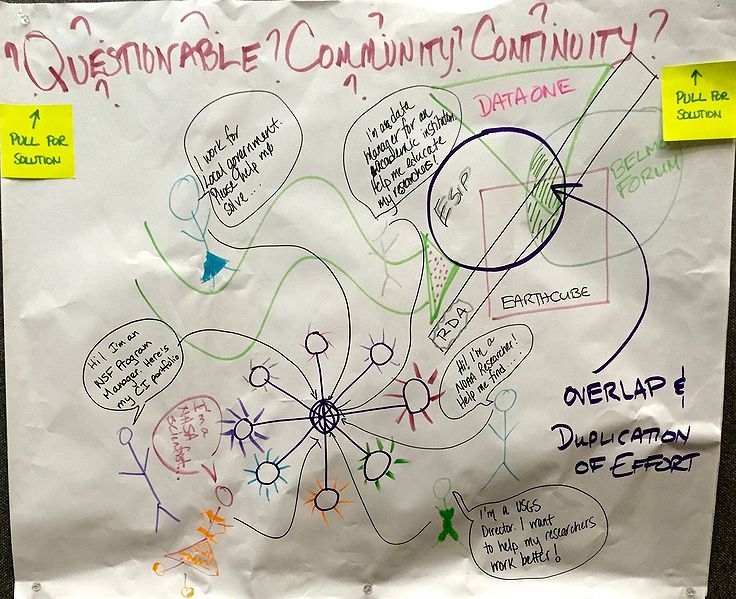 ? QUESTIONABLE ? COMMUNITY ? CONTINUITY ?
PULL FOR
SOLUTION
PULL FOR
SOLUTION
I work for
Local government.
Please help me
solve....
I'm a data
Manager for an
academic institution.
Help me educate
my researchers!
DATAONE
ESIP
BELMONT
FORUM
EARTHCUBE
RDA
OVERLAP &
DUPLICATION
OF EFFORT
Hi! I'm an
NSF Program
Manager. Here's
my CI portfolio
I'm a
NASA
Scientist...
Hi! I'm a
NOAA Researcher!
Help me find....
I'm a USGS
Director. I want
to help my researchers
work better!